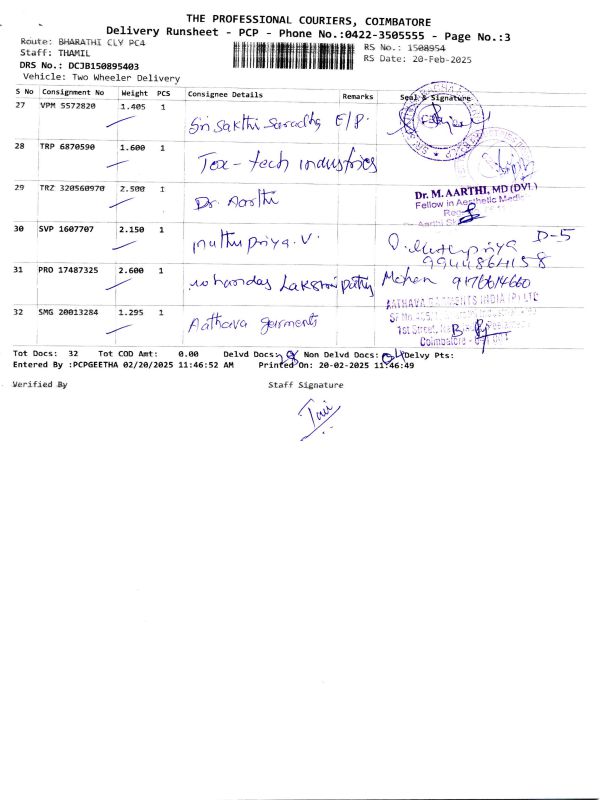 THE PROFESSIONAL COURIERS, COIMBATORE
Delivery Runsheet - PCP - Phone No.:0422-3505555 - Page No.:3
Route: BHARATHI CLY PC4
RS No.: 1508954
Staff: THAMIL
RS Date: 20-Feb-2025
DRS No.: DCJB150895403
Vehicle: Two Wheeler Delivery
S No Consignment No Weight PCS Consignee Details Remarks Seal & Signature
27 VPM 5572820 1.405 1 Sri Sakthi Saradha E/P.
28 TRP 6870590 1.600 1 Tex-tech industries
29 TRZ 320560970 2.500 1 Dr. Aarthi
Dr. M. AARTHI, MD (DVL)
Fellow in Aesthetic Medi
30 SVP 1607707 2.150 1 muthupriya.V. D-5
9944864158
31 PRO 17487325 2.600 1 Lakshmipathy Mohan 9176614660
32 SMG 20013284 1.295 1 Aathava garments
AATHAVA GARMENTS INDIA (P) LTD
1st Street,
Coimbatore -
Tot Docs: 32 Tot COD Amt: 0.00 Delvd Docs: 28 Non Delvd Docs: 04 Delvy Pts:
Entered By :PCPGEETHA 02/20/2025 11:46:52 AM Printed On: 20-02-2025 11:46:49
Verified By Staff Signature